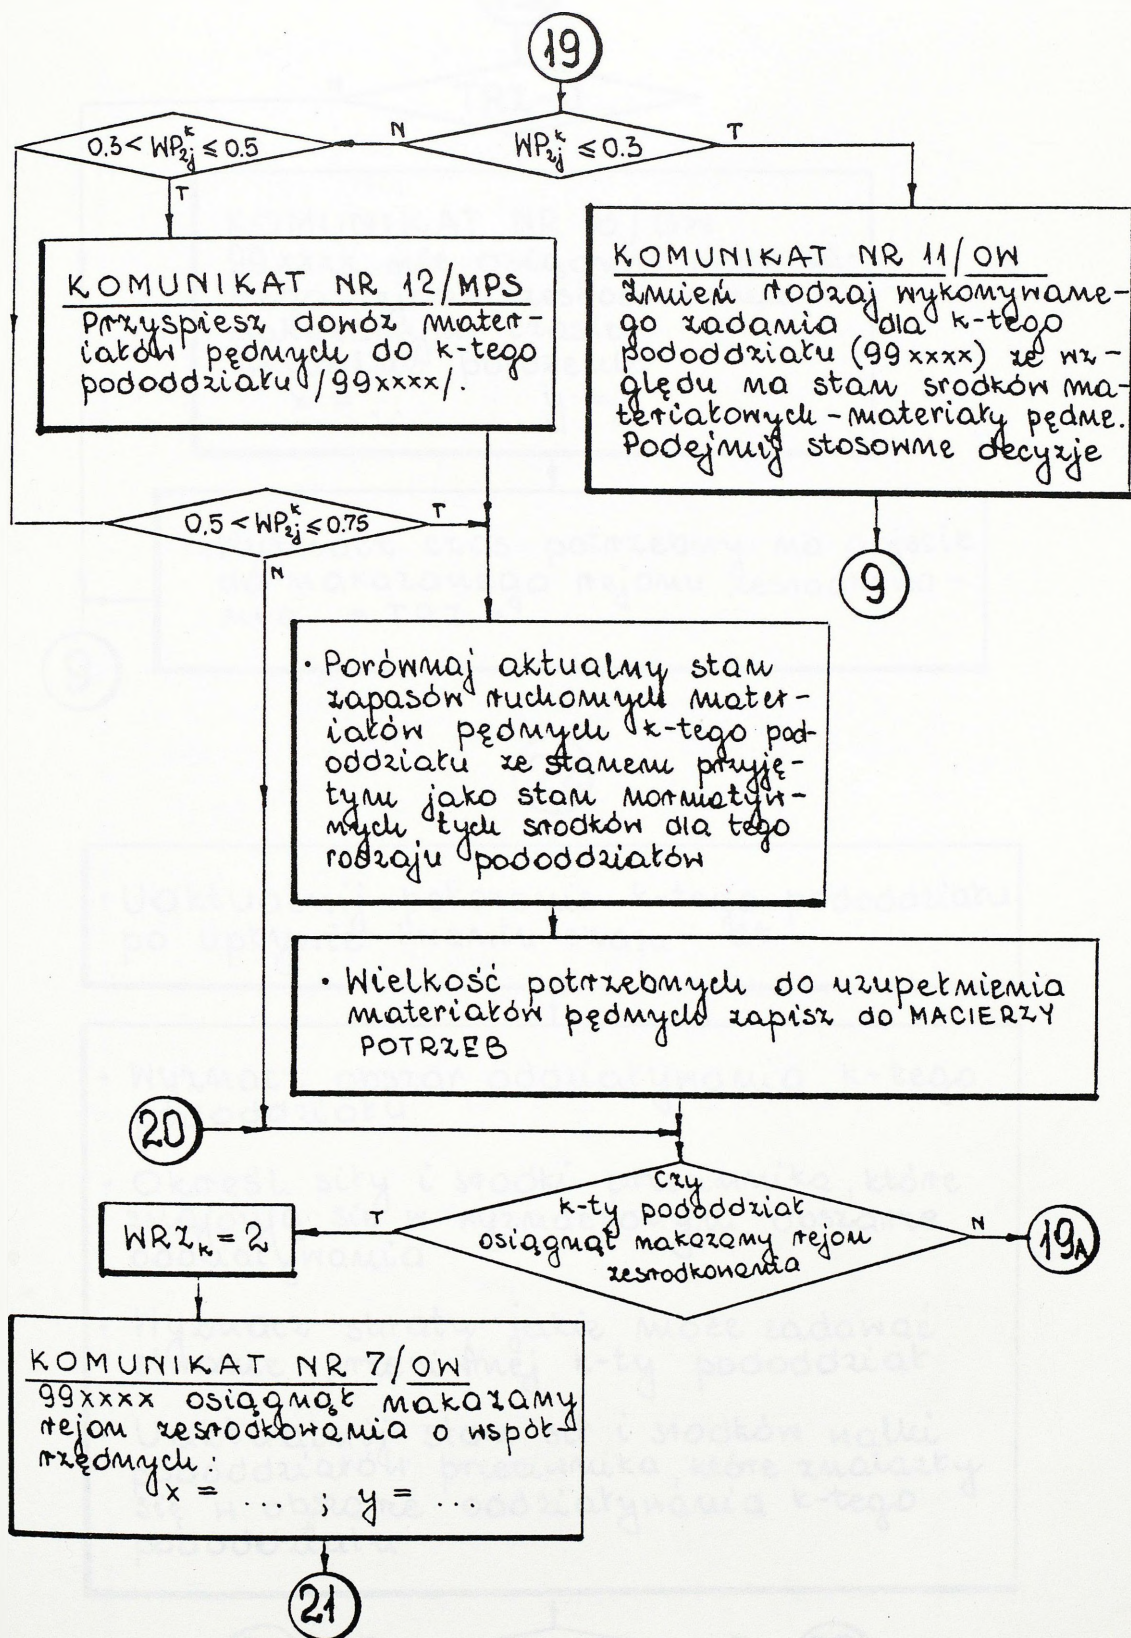 19
0.3 < WP_2j^k ≤ 0.5
N
WP_2j^k ≤ 0.3
T
T
KOMUNIKAT NR 12/MPS
Przyspiesz dowóz mater-
iałów pędnych do k-tego
pododdziału /99xxxx/.
KOMUNIKAT NR 11/OW
Zmień rodzaj wykonywane-
go zadania dla k-tego
pododdziału (99xxxx) ze wz-
ględu na stan srodków ma-
teriałowych - materiały pędne.
Podejmij stosowne decyzje
0.5 < WP_2j^k ≤ 0.75
T
N
9
• Porównaj aktualny stan
zapasów ruchomych mater-
iałów pędnych k-tego pod-
oddziału ze stanem przyję-
tym jako stan normatyw-
nych tych srodków dla tego
rodzaju pododdziałów
• Wielkość potrzebnych do uzupełnienia
materiałów pędnych zapisz do MACIERZY
POTRZEB
20
czy
k-ty pododdział
osiągnął nakazany rejon
zesrodkowania
T
N
WRZ_k = 2
19A
KOMUNIKAT NR 7/OW
99xxxx osiągnął nakazany
rejon zesrodkowania o współ-
rzędnych:
x = ... ; y = ...
21